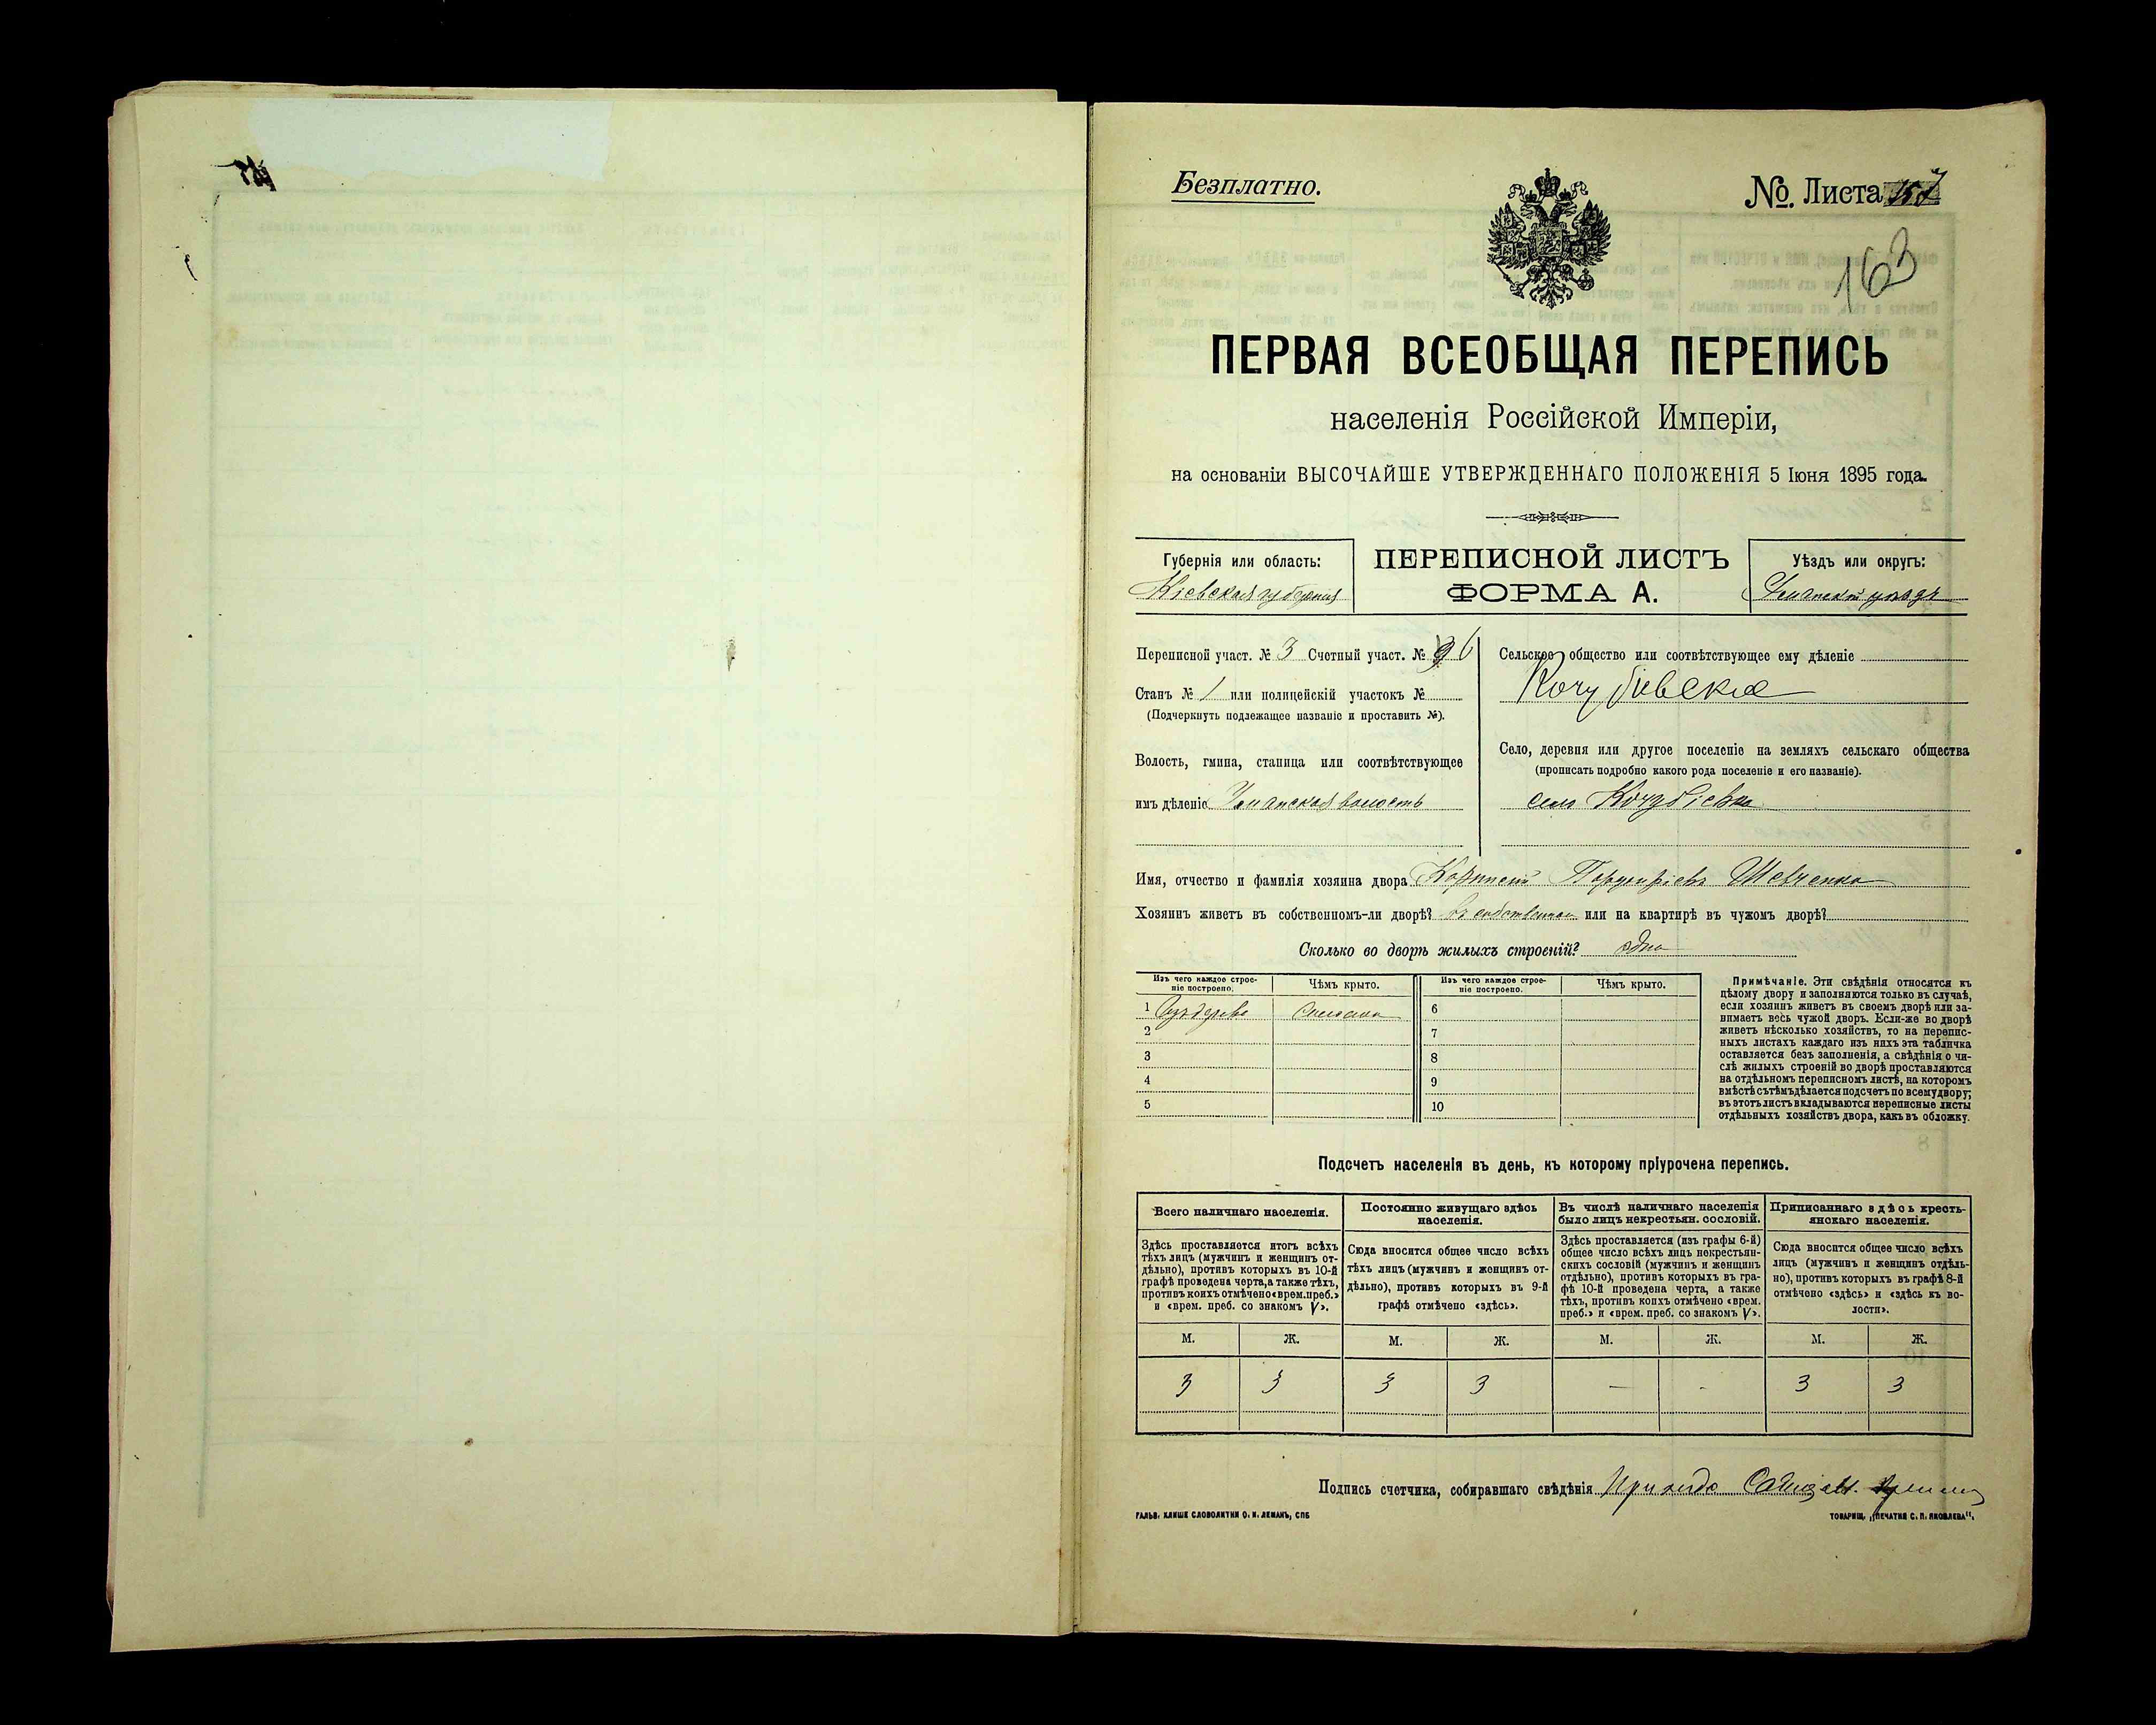 Безплатно.
№. Листа 157
163
ПЕРВАЯ ВСЕОБЩАЯ ПЕРЕПИСЬ
населенія Россійской Имперіи,
на основаніи ВЫСОЧАЙШЕ УТВЕРЖДЕННАГО ПОЛОЖЕНІЯ 5 Іюня 1895 года.
Губернія или область:
Кіевская губернія
ПЕРЕПИСНОЙ ЛИСТЪ
ФОРМА А.
Уѣздъ или округъ:
Уманскій уѣздъ
Переписной участ. № 3 Счетный участ. №
Станъ № 1 или полицейскій участокъ №
(Подчеркнуть подлежащее названіе и проставить №).
Волость, гмина, станица или соотвѣтствующее
имъ дѣленіе Уманская волость
Сельское общество или соотвѣтствующее ему дѣленіе
Кочубіевское
Село, деревня или другое поселеніе на земляхъ сельскаго общества
(прописать подробно какого рода поселеніе и его названіе).
село Кочубіевка
Имя, отчество и фамилія хозяина двора Шевченко
Хозяинъ живетъ въ собственномъ-ли дворѣ? въ собственномъ или на квартирѣ въ чужомъ дворѣ?
Сколько во дворѣ жилыхъ строеній? одно
Изъ чего каждое строе-
ніе построено.
Чѣмъ крыто.
Изъ чего каждое строе-
ніе построено.
Чѣмъ крыто.
1 Соломою 6
2 7
3 8
4 9
5 10
Примѣчаніе. Эти свѣдѣнія относятся къ
цѣлому двору и заполняются только въ случаѣ,
если хозяинъ живетъ въ своемъ дворѣ или за-
нимаетъ весь чужой дворъ. Если-же во дворѣ
живетъ нѣсколько хозяйствъ, то на перепис-
ныхъ листахъ каждаго изъ нихъ эта табличка
оставляется безъ заполненія, а свѣдѣнія о чи-
слѣ жилыхъ строеній во дворѣ проставляются
на отдѣльномъ переписномъ листѣ, на которомъ
вмѣстѣ съ тѣмъ дѣлается подсчетъ по всему двору;
въ этотъ листъ вкладываются переписные листы
отдѣльныхъ хозяйствъ двора, какъ въ обложку.
Подсчетъ населенія въ день, къ которому пріурочена перепись.
Всего наличнаго населенія.
Здѣсь проставляется итогъ всѣхъ
тѣхъ лицъ (мужчинъ и женщинъ от-
дѣльно), противъ которыхъ въ 10-й
графѣ проведена черта, а также тѣхъ,
противъ коихъ отмѣчено «врем. преб.»
и «врем. преб. со знакомъ V».
Постоянно живущаго здѣсь
населенія.
Сюда вносится общее число всѣхъ
тѣхъ лицъ (мужчинъ и женщинъ от-
дѣльно), противъ которыхъ въ 9-й
графѣ отмѣчено «здѣсь».
Въ числѣ наличнаго населенія
было лицъ некрестьян. сословій.
Здѣсь проставляется (изъ графы 6-й)
общее число всѣхъ лицъ некрестьян-
скихъ сословій (мужчинъ и женщинъ
отдѣльно), противъ которыхъ въ гра-
фѣ 10-й проведена черта, а также
тѣхъ, противъ коихъ отмѣчено «врем.
преб.» и «врем. преб. со знакомъ V».
Приписаннаго здѣсь кресть-
янскаго населенія.
Сюда вносится общее число всѣхъ
лицъ (мужчинъ и женщинъ отдѣль-
но), противъ которыхъ въ графѣ 8-й
отмѣчено «здѣсь» и «здѣсь къ во-
лости».
М. Ж. М. Ж. М. Ж. М. Ж.
3 3 3 3 — - 3 3
Подпись счетчика, собиравшаго свѣдѣнія
ГАЛЬВ. КЛИШЕ СЛОВОЛИТНИ О. И. ЛЕМАНЪ, СПБ
ТОВАРИЩ. „ПЕЧАТНЯ С. П. ЯКОВЛЕВА".